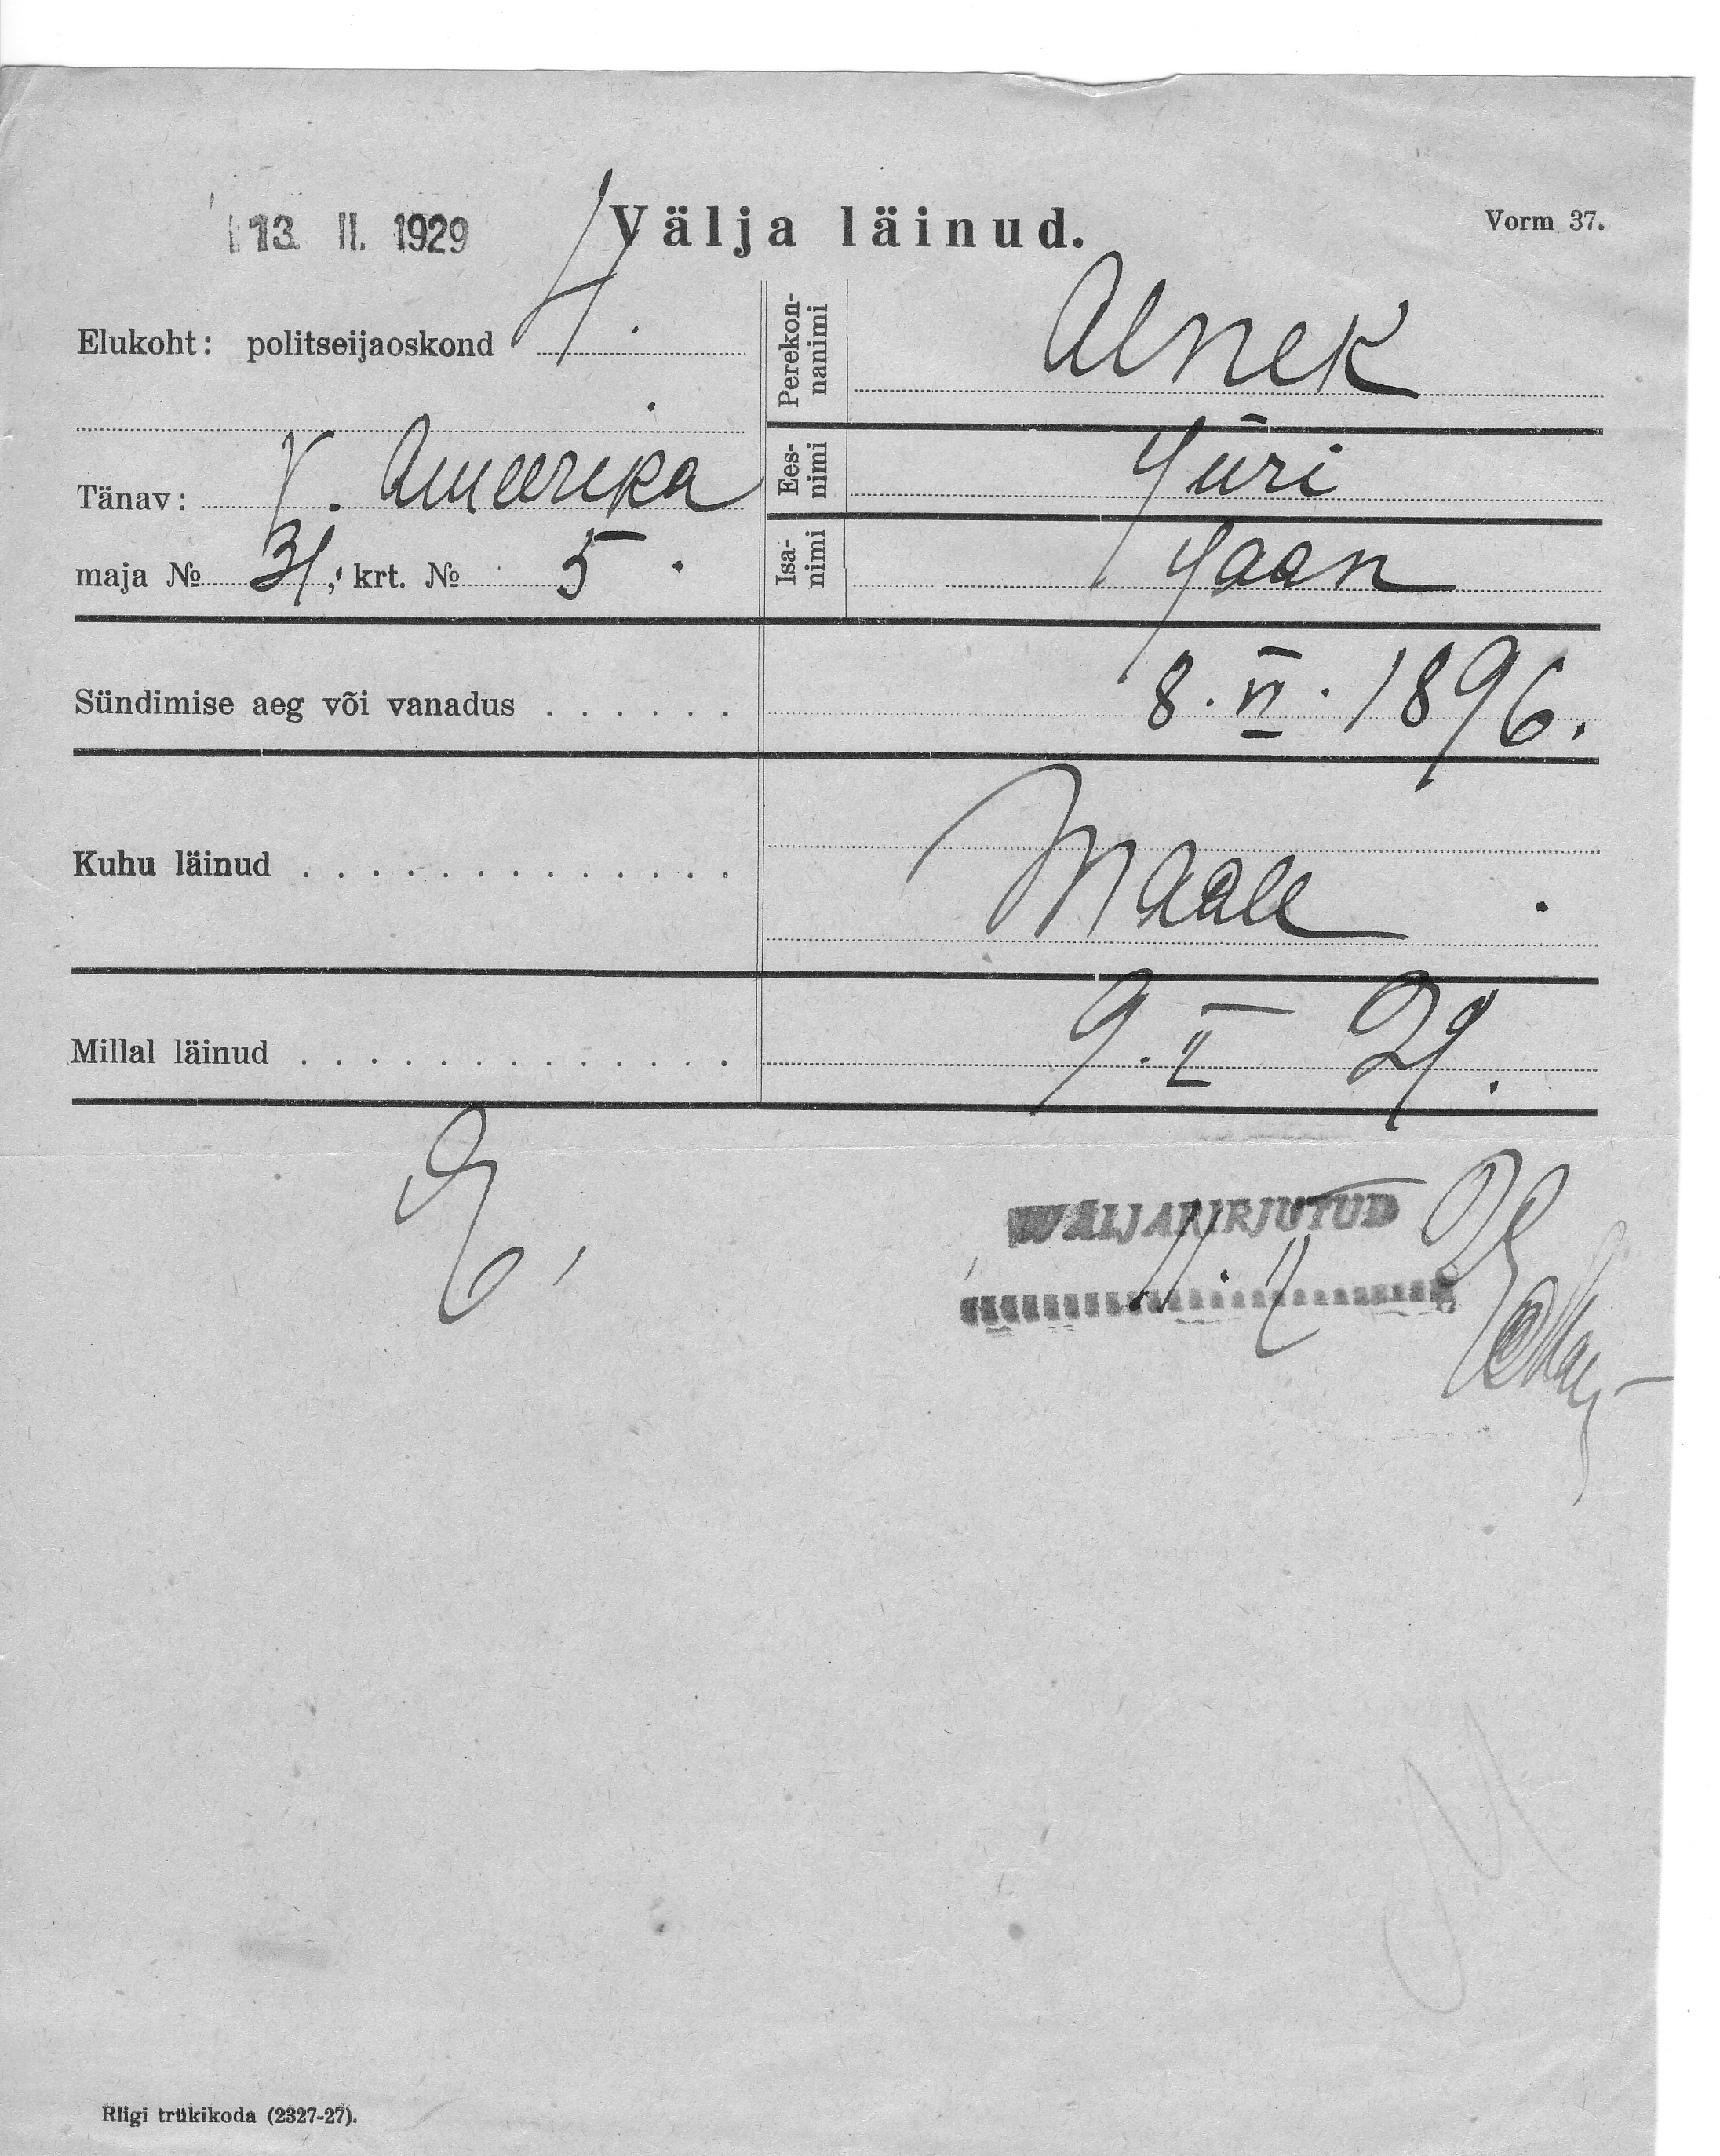 13. II. 1929
Välja läinud.
Vorm 37.
Elukoht: politseijaoskond 4.
Tänav: V. Ameerika
maja № 31, krt. № 5.
Perekon-
nanimi
Alnek
Ees-
nimi
Jüri
Isa-
nimi
Jaan
Sündimise aeg või vanadus . . . . . . 8. VI. 1896.
Kuhu läinud . . . . . . . . . . . . . Maale.
Millal läinud . . . . . . . . . . . . . 9. II 29.
WÄLJAKIRJUTUD
11. II
Riigi trükikoda (2327-27).